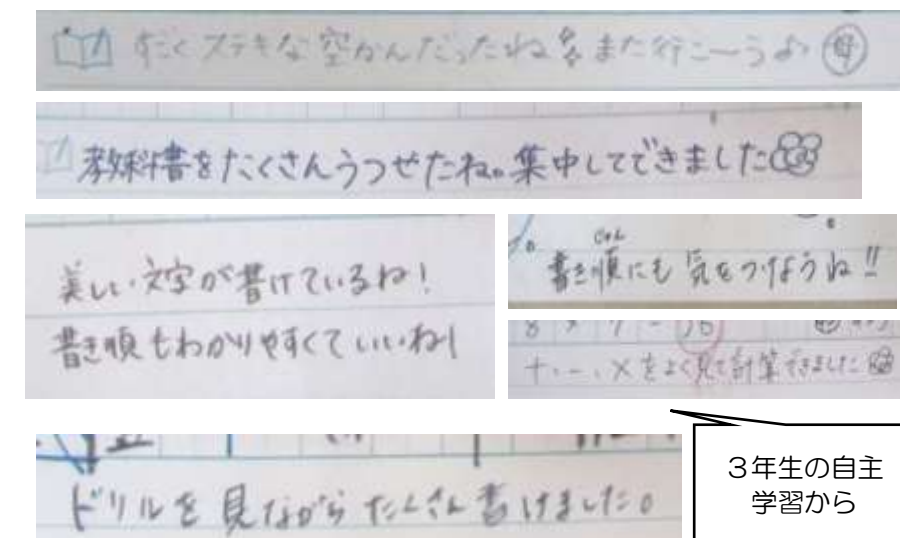 すごくステキな空かんだったね また行こーうよ 母
教科書をたくさんうつせたね。集中してできました
美しい文字が書けているね!
書き順もわかりやすくていいね!
じゅん
書き順にも気をつけようね!!
8 × 7 = 56
+、-、×をよく見て計算できました
ドリルを見ながらたくさん書けました。
3年生の自主
学習から